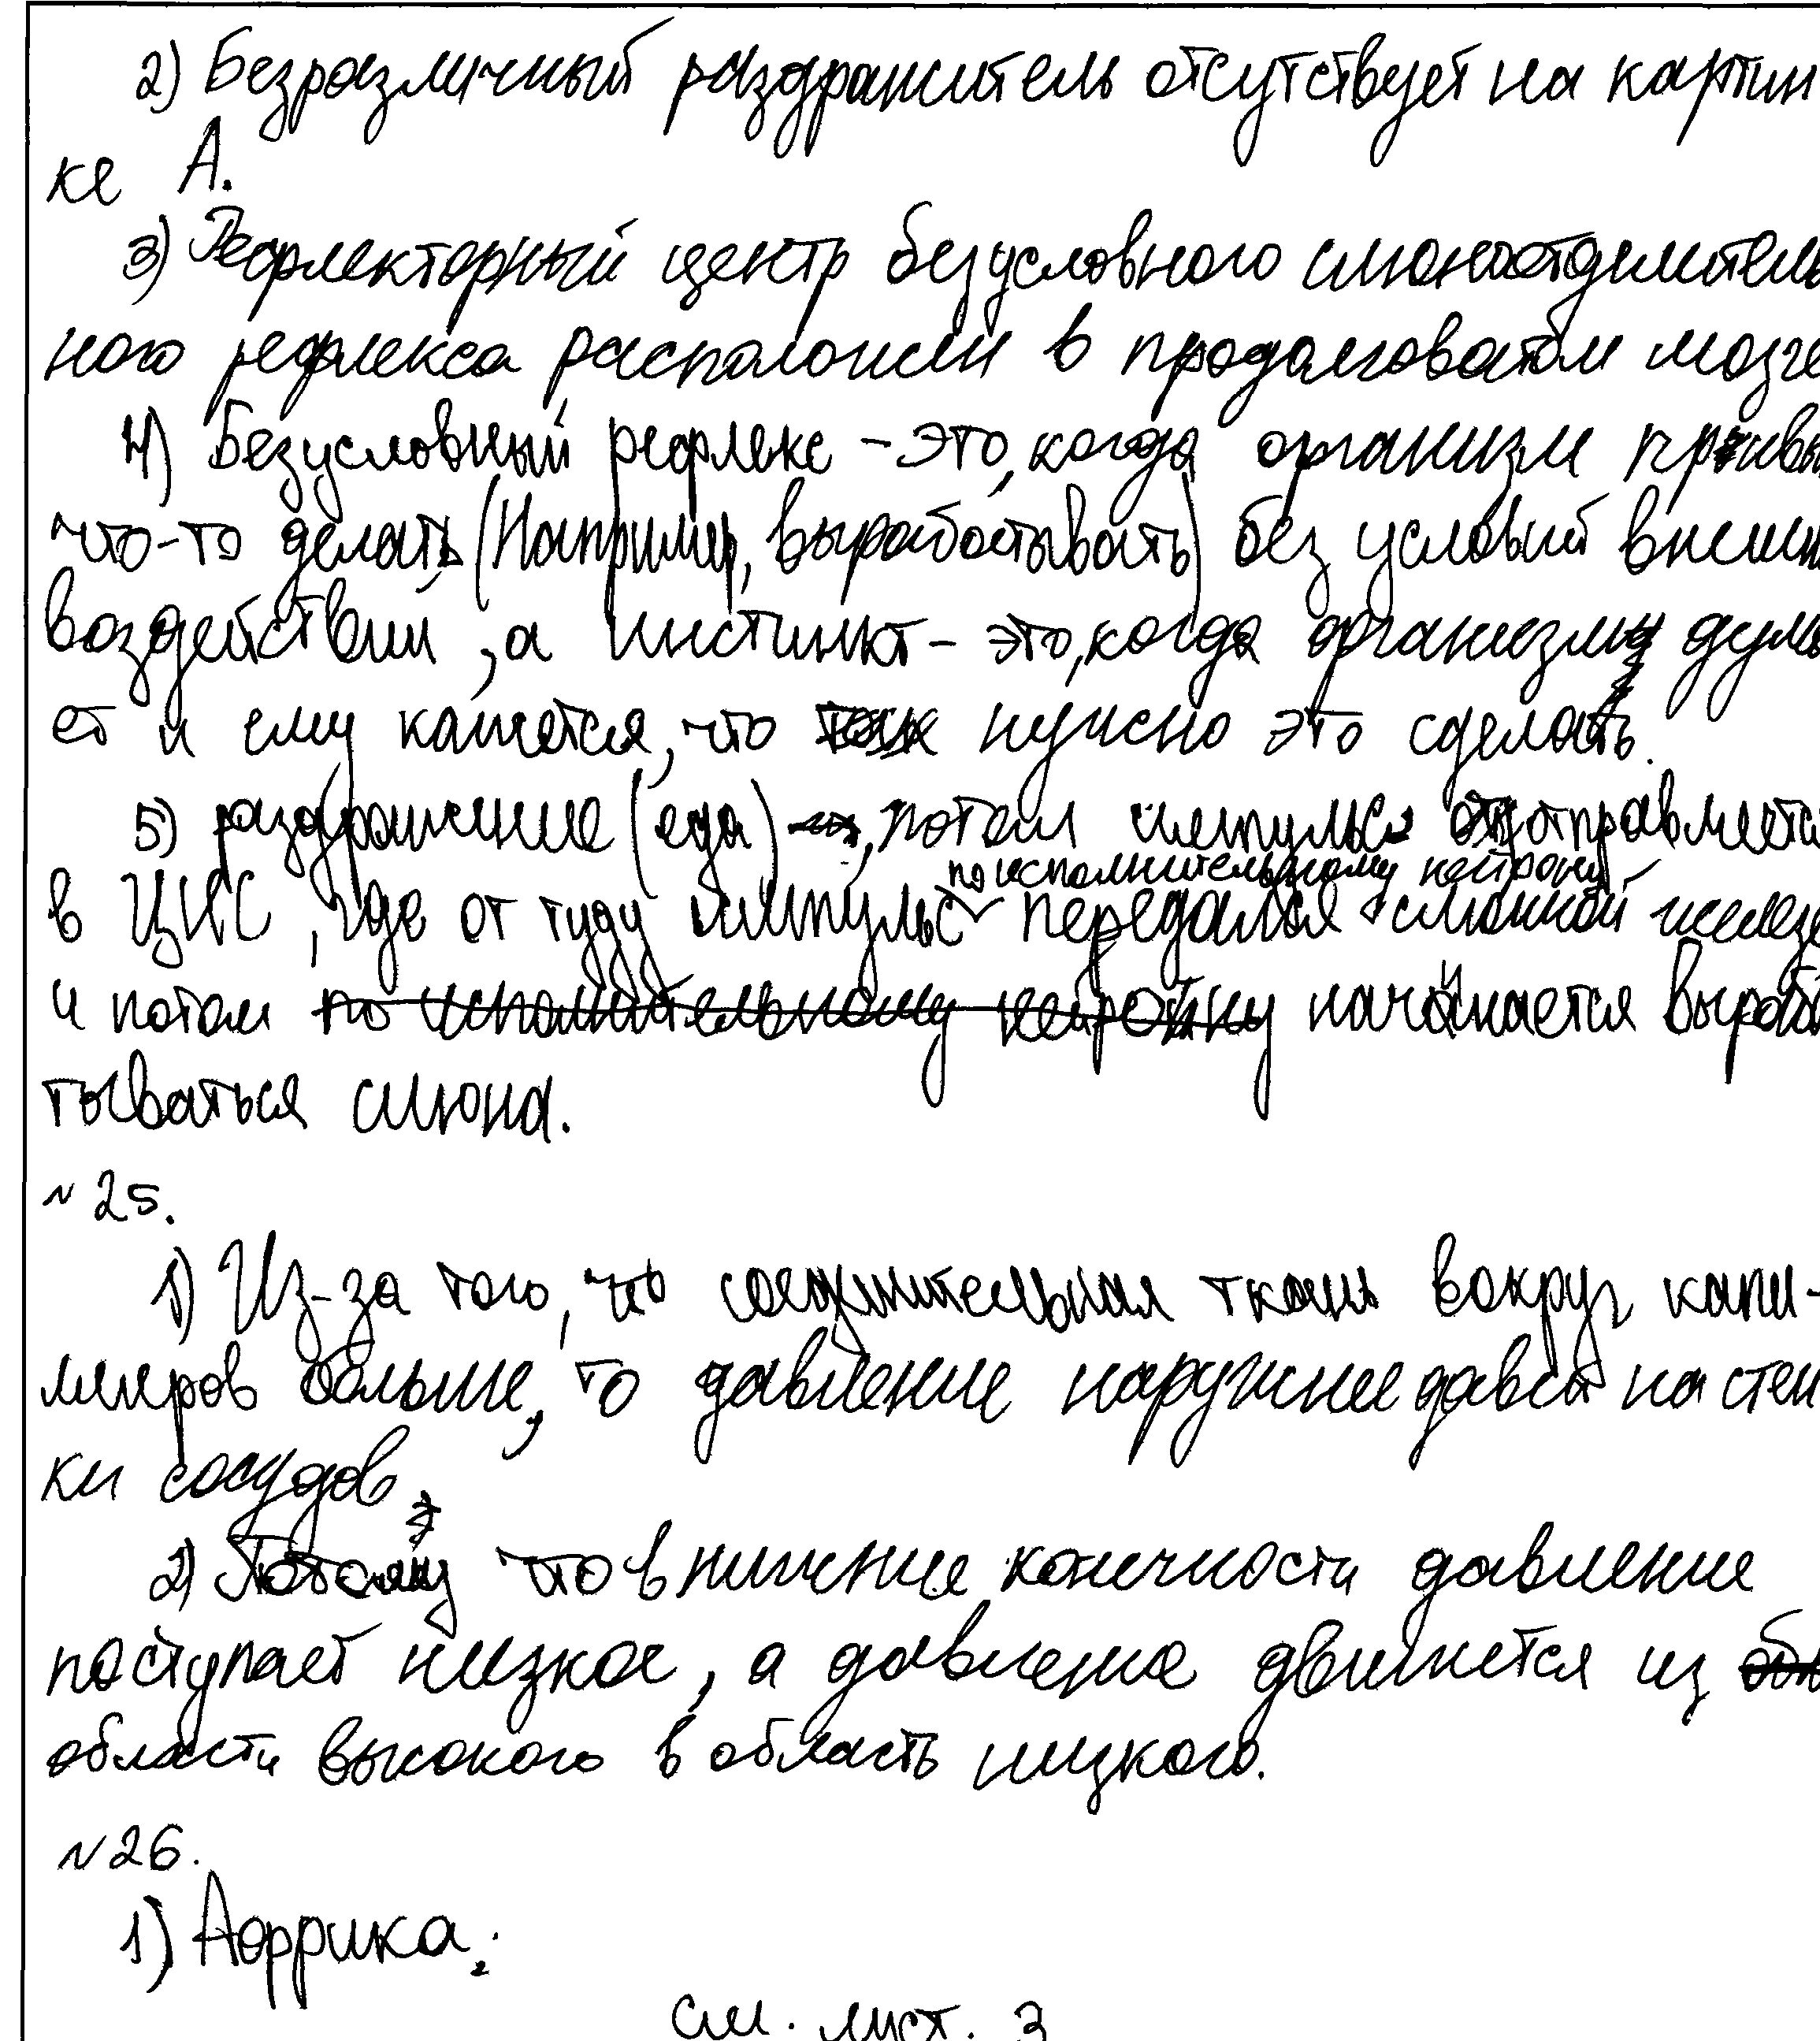 2) Безразличный раздражитель отсутствует на картин
ке А.
3) Рефлекторный центр безусловного слюноотделитель
ного рефлекса расположен в продолговатом мозге
4) Безусловный рефлекс - это, когда организм привы
что-то делать (Например, вырабатывать) без условий внешн
воздействий, а инстинкт - это, когда организм дума
ет и ему кажется, что нужно это сделать.
5) раздражение (еда), потом импульс отправляется
по исполнительному нейрону
в ЦНС, где от туду импульс передался слюнной железе
и потом по исполнительному нейрону начинается выраба
тываться слюна.
№25.
1) Из-за того, что соединительная ткань вокруг капи-
лляров больше, то давление наружнее давит на стен
ки сосудов
2) Потому что в нижние конечности давление
поступает низкое, а давление движется из
области высокого в область низкого.
№26.
1) Аффрика.
см. лист. 3